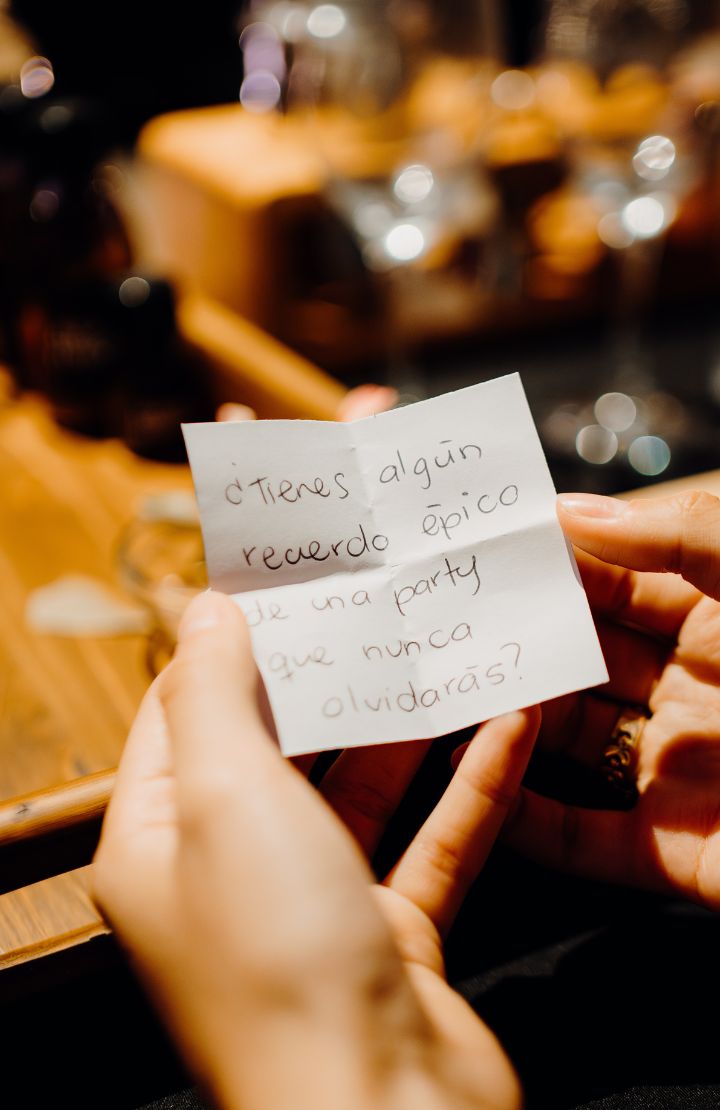 ¿Tienes algún
recuerdo épico
de una party
que nunca
olvidarás?